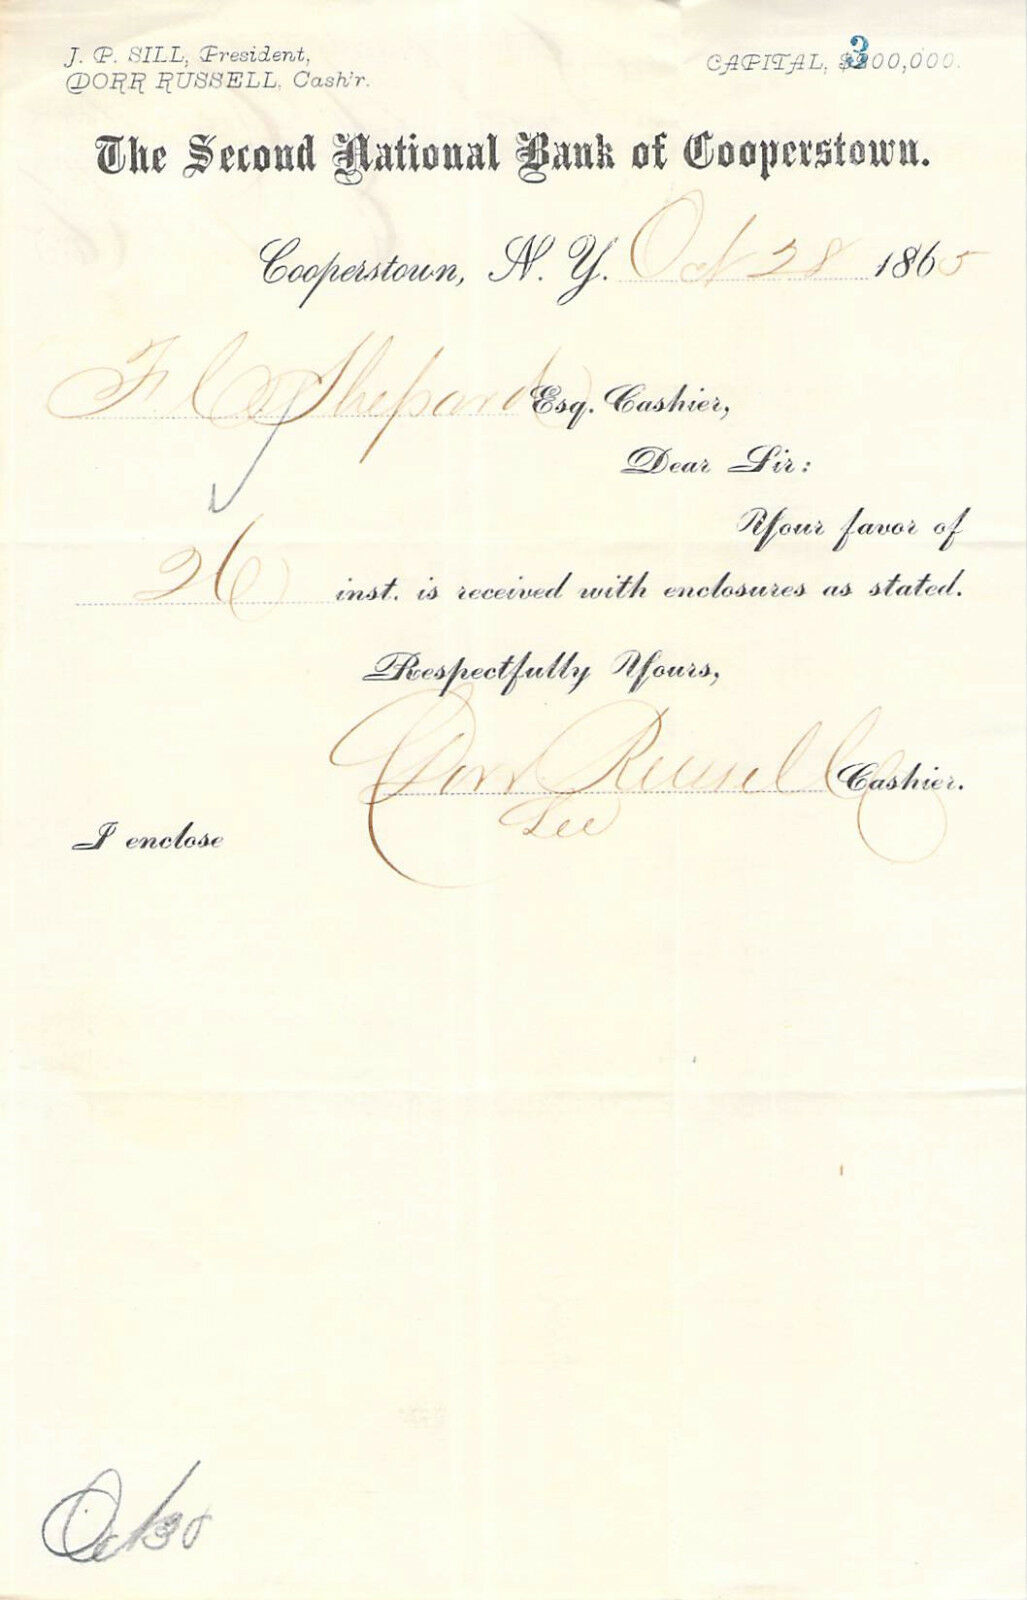 J. P. SILL, President,
DORR RUSSELL, Cash'r.
CAPITAL, $300,000.
The Second National Bank of Cooperstown.
Cooperstown, N. Y. Oct 28 1865
F C Shepard Esq. Cashier,
Dear Sir:
Your favor of
26 inst. is received with enclosures as stated.
Respectfully Yours,
Dorr Russell Cashier.
I enclose
Oct 30